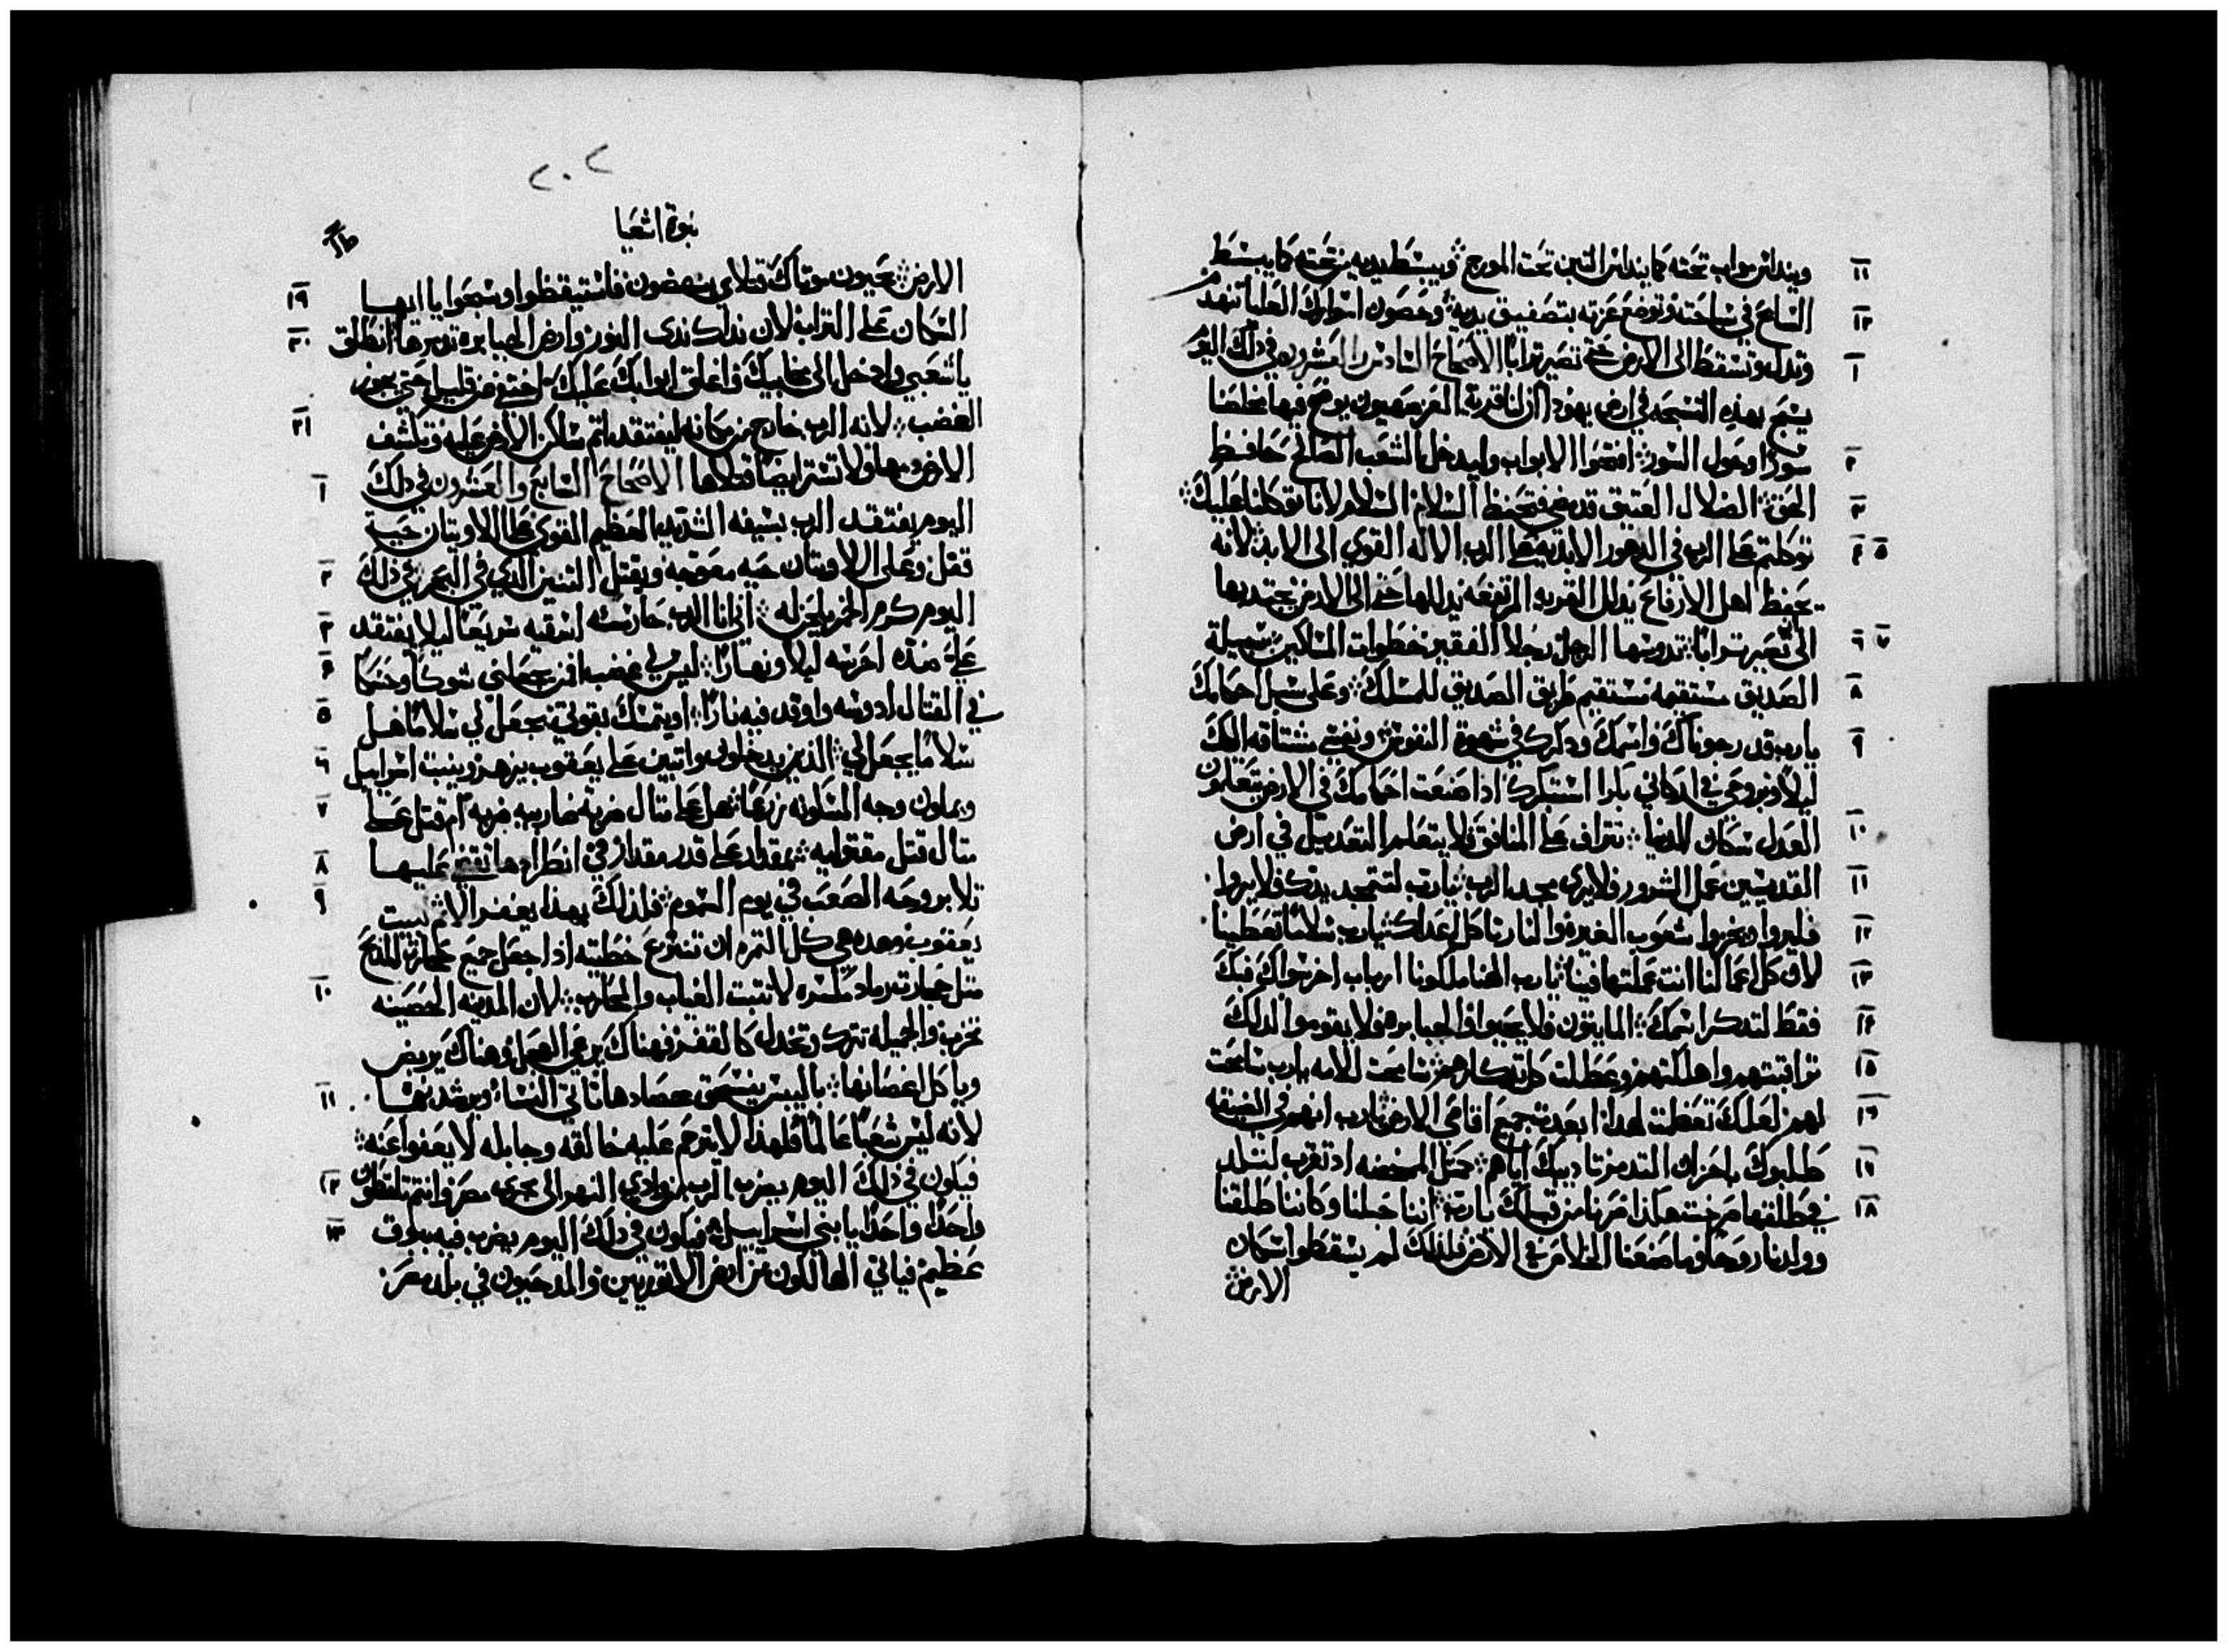 ١١ ويندانس مواب تحته كما يندانس التبن تحت المورج ؞ ويبسط يديه من تحته كما يبسط
١٢ السابح في سباحته وتوضع عزته بتصفيق يديه ؞ وحصون اسوارك العليا تنهدم
١ وتذل وتسقط الى الارض حتى تصير ترابا الاصحاح السادس والعشرون في ذلك اليوم
يسبح بهذه التسبحه في ارض يهوذا ان لنا قرية العز صهيون يوضع فيها مخلصنا
٢ سورا وحول السور ؞ افتحوا الابواب وليدخل الشعب الصالح حافظ
٣ الحق ؞ الضلال العتيق قد مضى فتحفظ السلام السلام لانا توكلنا عليك ؞
٤ ٥ توكلتم على الرب في الدهور الابديه على الرب الاله القوي الى الابد ؞ لانه
يحفظ اهل الارفاع يذلل القريه المرتفعه يذللها حتى الى الارض يجتديها
٦ ٧ الى تصير ترابا ؞ تدوسها الرجل رجلا الفقير خطوات المساكين ؞ سبيلة
٨ الصديق مستقيمه مستقيم طريق الصديق للمسلك ؞ وعلى سبل احكامك
٩ يارب قد رجوناك واسمك وذكرك في شهوة النفوس ؞ ونفسي مشتاقه اليك
ليلا وبروحي في اركاني بكرا استبكرك اذا صنعت احكامك في الارض يتعلمون
١٠ العدل سكان الدنيا ؞ نتراف على المنافق فلا يتعلم التعديل في ارض
١١ القديسين عمل الشرور فلا يرى مجد الرب ؞ يارب لتتمجد يدك فلا يروا
١٢ فليروا ويخزوا شعوب الغيره والنار تاكل اعداك ؞ يارب سلاما تعطينا
١٣ لان كل اعمالنا انت عملتها فينا ؞ يارب الهنا ملكونا ارباب اخر سواك فبك
١٤ فقط لتذكر اسمك ؞ المايتون فلا يحيوا والجبابره فلا يقوموا لذلك
١٥ تراقبتهم واهلكتهم وعطلت كل تذكارهم ؞ سامحت للامه يارب سامحت
١٦ لهم لعلك تعظمت لهذا ابعدت جميع اقاصي الارض ؞ يارب انهم في الضيقه
١٧ طلبوك باحزان التدمر تاديبك اياهم ؞ كمثل المخضه اذ تقرب لتلد
١٨ في طلقها صرخت هكذا صرنا من قبلك يارب ؞ اننا حبلنا وكاننا طلقنا
وولدنا روحا وما صنعنا الخلاص في الارض فلذلك لم يسقطوا سكان
الارض
٢٠٢
نبوة اشعيا
الارض ؞ يحيون موتاك قتلاي ينهضون فاستيقظوا وسبحوا يا ايها ١٩
السكان على التراب لان نداك ندى النور وارض الجبابره تدمرها ؞ انطلق ٢٠
يا شعبي وادخل الى مخابيك واغلق ابوابك عليك اختفي من قليل حتى يجوز
الغضب ؞ لانه الرب خارج من مكانه ليفتقد اثم ساكن الارض عليه وتكشف ٢١
الارض دمها ولا تستر ايضا قتلاها الاصحاح السابع والعشرون في ذلك ١
اليوم يفتقد الرب بسيفه الشديد العظيم القوي على الاويتان حية
قفل وعلى اللاويتان حيه معوجه ويقتل التنين الذي في البحر ؞ في ذلك ٢
اليوم كرم الخمر يلحن له ؞ اني انا الرب حارسه اسقيه سريعا ليلا يفتقد ٣
عليه منذه احرسه ليلا ونهارا ؞ ليس لي غضب افمن يجعلني شوكا وحسكا ٤
في القتال ادوسه واوقد فيه نارا ؞ او يتمسك بقوتي يجعل لي سلاما هل ٥
سلاما يجعل لي ؞ الذين يدخلون مواتبين على يعقوب يزهر وينبت اسراييل ٦
ويملون وجه المسكونه زرعا ؞ هل على مثال ضربة ضاربيه ضربه ام قتل على ٧
مثال قتل مقتوليه ؞ بمقدار على قدر مقدار في انطرادها تقضي عليها ٨
تلا بروحه الصعب في يوم السموم ؞ فلذلك بهذا يغفر الاثم لبيت ٩
يعقوب وهذه هي كل الثمره ان تنتزع خطيته اذا جعل جميع حجارة المذبح
مثل حجارة رماد مكسره لا تثبت الغياب والمحارب ؞ لان المدينه الحصينه ١٠
تخرب والجميله تترك وتخذل كالقفر فهناك يرعى العجل وهناك يربض
وياكل اغصانها ؞ باليبس ينسحق حصادها تاتي النساء ويرشدنها ١١
لانه ليس شعبا عالما فلهذا لا يترحم عليه خالقه وجابله لا يعفوا عنه ؞
فيكون في ذلك اليوم يضرب الرب من وادي النهر الى مجرى مصر وانتم تلتقطون ١٢
واحدا واحدا يا بني اسراييل ؞ فيكون في ذلك اليوم يضرب فيه ببوق ١٣
عظيم فياتي الهالكون من ارض الاثوريين والمدحيون في بلد مصر